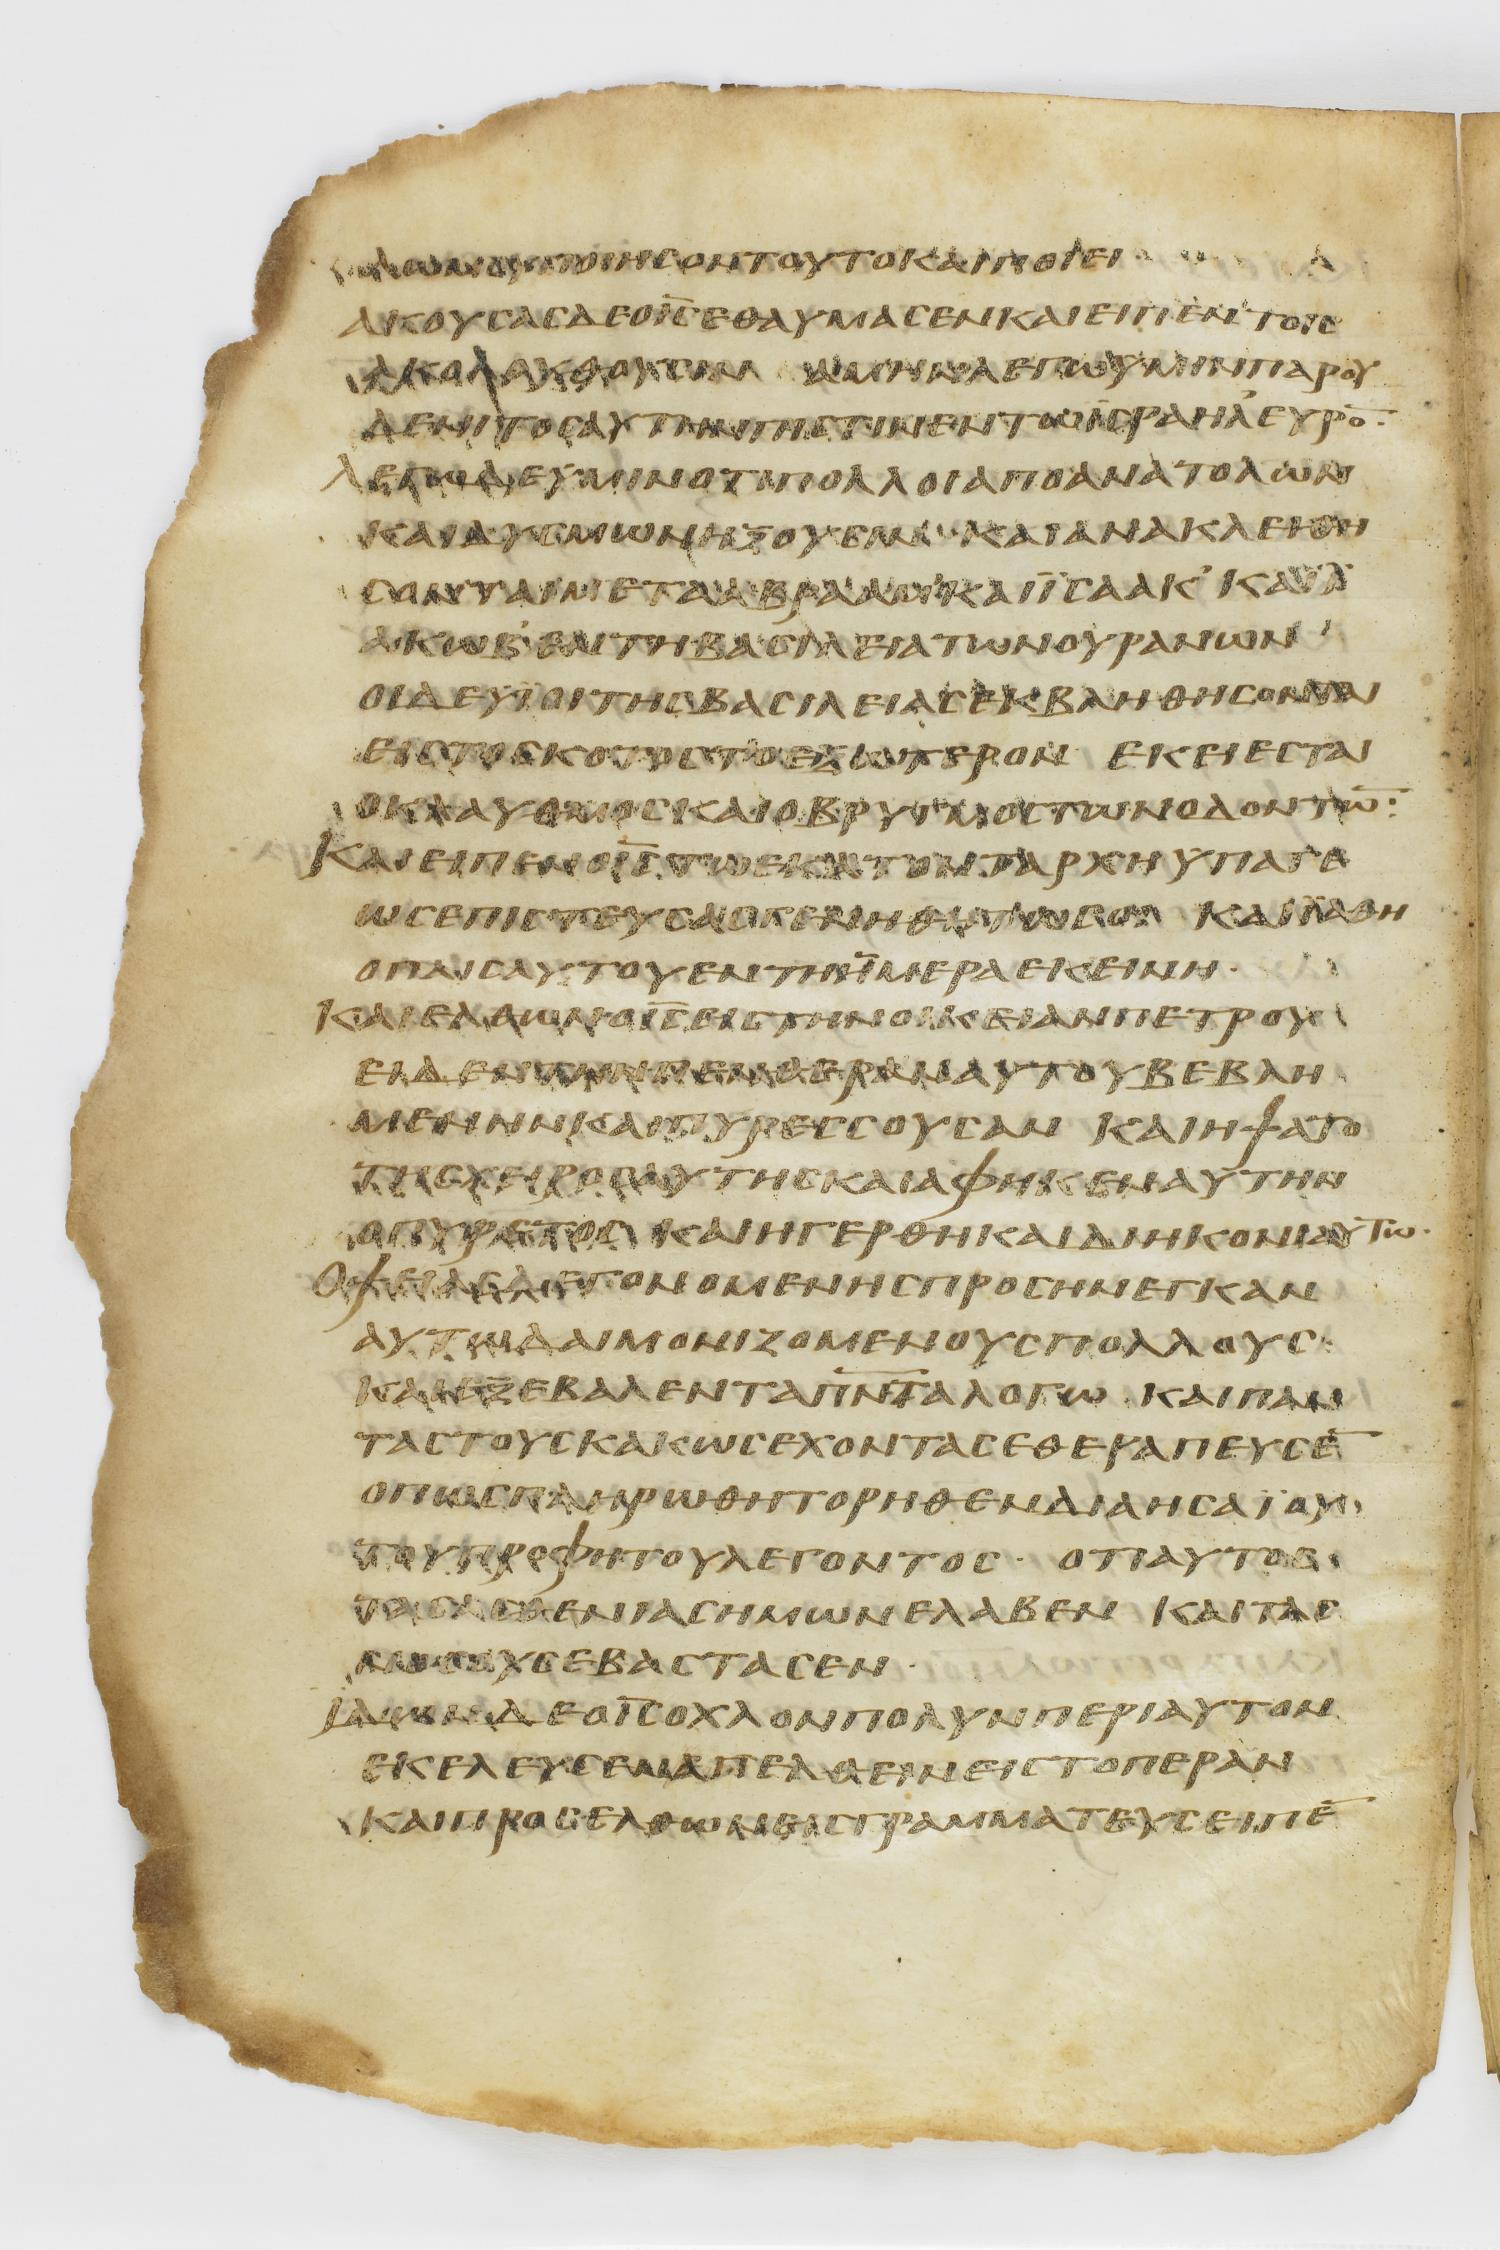 ΔΟΥΛΩΜΟΥΠΟΙΗϹΟΝΤΟΥΤΟΚΑΙΠΟΙΕΙ
ΑΚΟΥϹΑϹΔΕΟΙ̅Ϲ̅ΕΘΑΥΜΑϹΕΝΚΑΙΕΙΠΕΝΤΟΙϹ
ΑΚΟΛΟΥΘΟΥϹΙΝ ΑΜΗΝΛΕΓΩΥΜΙΝΠΑΡΟΥ
ΔΕΝΙΤΟϹΑΥΤΗΝΠΙϹΤΙΝΕΝΤΩΙϹΡΑΗΛΕΥΡΟ̅·
ΛΕΓΩΔΕΥΜΙΝΟΤΙΠΟΛΛΟΙΑΠΟΑΝΑΤΟΛΩΝ
ΚΑΙΔΥϹΜΩΝΗΞΟΥϹΙΝ· ΚΑΙΑΝΑΚΛΕΙΘΗ
ϹΟΝΤΑΙΜΕΤΑΑΒΡΑΑΜ᾽ΚΑΙΪϹΑΑΚ᾽ΚΑΙΪ
ΑΚΩΒ᾽ΕΝΤΗΒΑϹΙΛΕΙΑΤΩΝΟΥΡΑΝΩΝ
ΟΙΔΕΥΪΟΙΤΗϹΒΑϹΙΛΕΙΑϹΕΚΒΛΗΘΗϹΟΝΤΑΙ
ΕΙϹΤΟϹΚΟΤΟϹΤΟΕΞΩΤΕΡΟΝ ΕΚΕΙΕϹΤΑΙ
ΟΚΛΑΥΘΜΟϹΚΑΙΟΒΡΥΓΜΟϹΤΩΝΟΔΟΝΤΩ̅:
ΚΑΙΕΙΠΕΝΟΙ̅Ϲ̅ΤΩΕΚΑΤΟΝΤΑΡΧΗΥΠΑΓΕ
ΩϹΕΠΙϹΤΕΥϹΑϹΓΕΝΗΘΗΤΩϹΟΙ ΚΑΙΪΑΘΗ
ΟΠΑΙϹΑΥΤΟΥΕΝΤΗΗΜΕΡΑΕΚΕΙΝΗ·
ΚΑΙΕΛΘΩΝΟΙ̅Ϲ̅ΕΙϹΤΗΝΟΙΚΕΙΑΝΠΕΤΡΟΥ
ΕΙΔΕΝΤΗΝΠΕΝΘΕΡΑΝΑΥΤΟΥΒΕΒΛΗ
ΜΕΝΗΝΚΑΙΠΥΡΕϹϹΟΥϹΑΝ ΚΑΙΗΨΑΤΟ
ΤΗϹΧΕΙΡΟϹΑΥΤΗϹΚΑΙΑΦΗΚΕΝΑΥΤΗΝ
ΟΠΥΡΕΤΟϹ ΚΑΙΗΓΕΡΘΗΚΑΙΔΙΗΚΟΝΙΑΥΤΩ·
ΟΨΕΙΑϹΔΕΓΕΝΟΜΕΝΗϹΠΡΟϹΗΝΕΓΚΑΝ
ΑΥΤΩΔΑΙΜΟΝΙΖΟΜΕΝΟΥϹΠΟΛΛΟΥϹ·
ΚΑΙΕΞΕΒΑΛΕΝΤΑΠ̅Ν̅Τ̅Α̅ΛΟΓΩ ΚΑΙΠΑΝ
ΤΑϹΤΟΥϹΚΑΚΩϹΕΧΟΝΤΑϹΕΘΕΡΑΠΕΥϹΕ̅
ΟΠΩϹΠΛΗΡΩΘΗΤΟΡΗΘΕΝΔΙΑΗϹΑΪΟΥ
ΤΟΥΠΡΟΦΗΤΟΥΛΕΓΟΝΤΟϹ· ΟΤΙΑΥΤΟϹ
ΤΑϹΑϹΘΕΝΙΑϹΗΜΩΝΕΛΑΒΕΝ ΚΑΙΤΑϹ
ΝΟϹΟΥϹΕΒΑϹΤΑϹΕΝ·
ΙΔΩΝΔΕΟΙ̅Ϲ̅ΟΧΛΟΝΠΟΛΥΝΠΕΡΙΑΥΤΟΝ
ΕΚΕΛΕΥϹΕΝΑΠΕΛΘΕΙΝΕΙϹΤΟΠΕΡΑΝ
ΚΑΙΠΡΟϹΕΛΘΩΝΕΙϹΓΡΑΜΜΑΤΕΥϹΕΙΠΕ̅